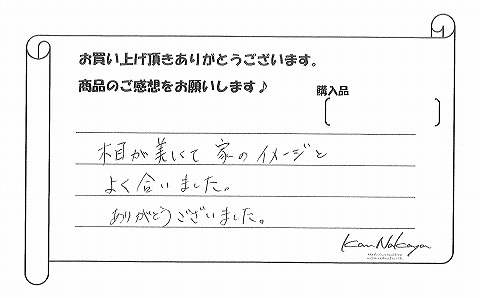 お買い上げ頂きありがとうございます。
商品のご感想をお願いします♪
購入品
木目が美しくて 家のイメージと
よく合いました。
ありがとうございました。
Kan Nakaya